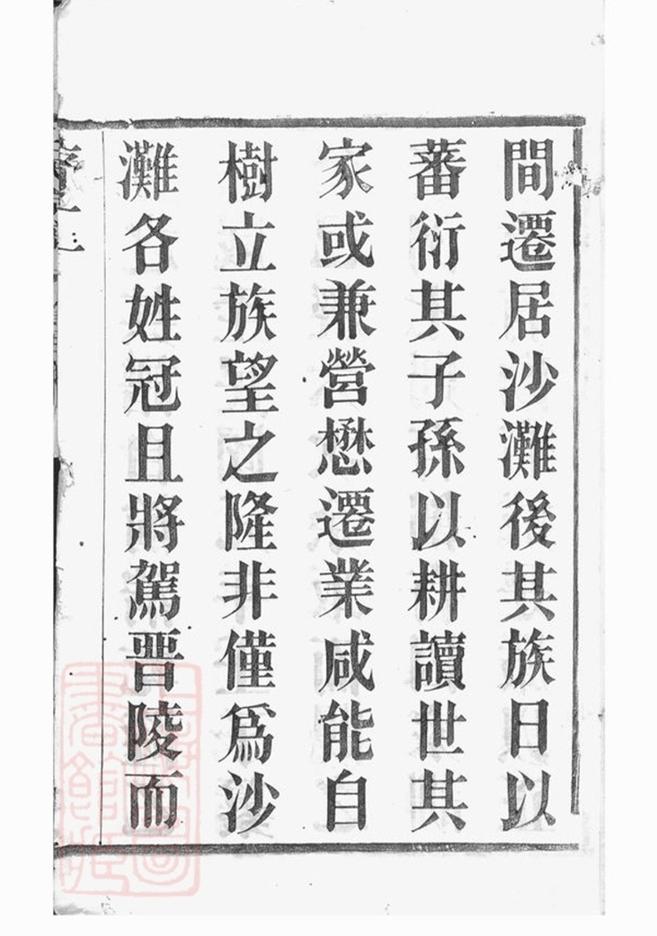 間遷居沙灘後其族日以
蕃衍其子孫以耕讀世其
家或兼營懋遷業咸能自
樹立族望之隆非僅為沙
灘各姓冠且將駕晉陵而